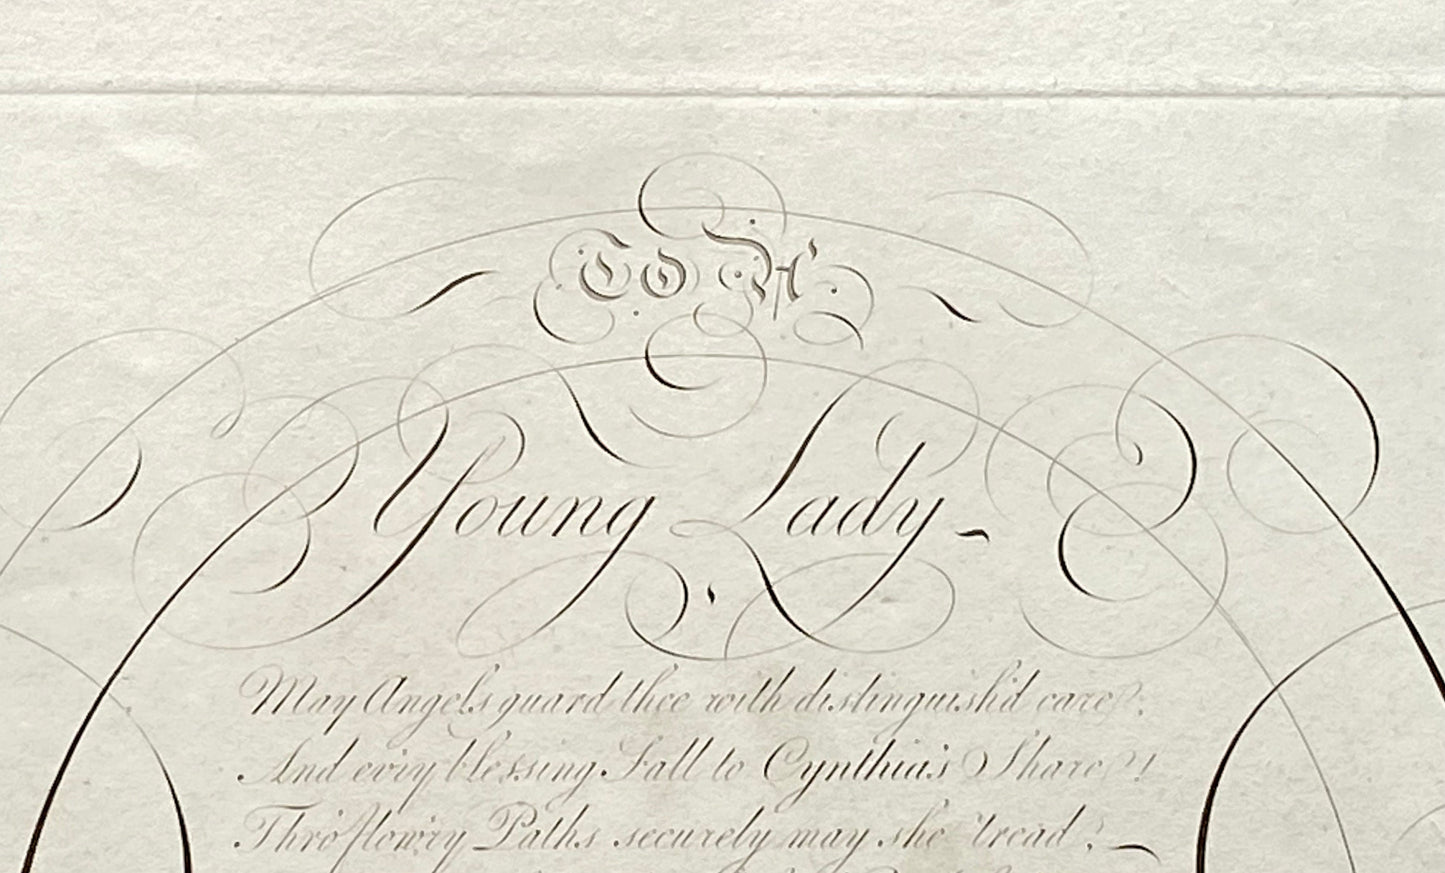 To A
Young Lady
May Angels guard thee with distinguish'd care,
And ev'ry blessing Fall to Cynthia's Share!
Thro' flow'ry Paths securely may she tread,